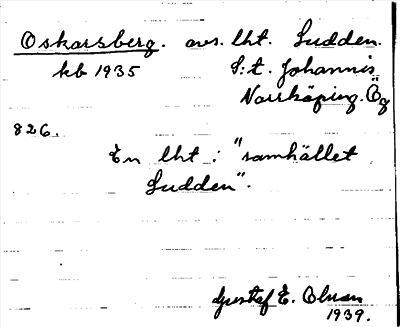 Oskarsberg. avs. lht. Sudden.
kb 1935 S:t. Johannis
Norrköping. Ög
826.
En lht i "samhället
Sudden".
Gustaf E.
1939.